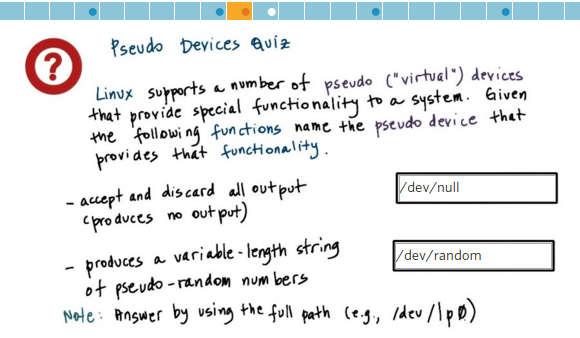 ?
Pseudo Devices Quiz
Linux supports a number of pseudo ("virtual") devices
that provide special functionality to a system. Given
the following functions name the pseudo device that
provides that functionality.
- accept and discard all output
(produces no output)
/dev/null
- produces a variable-length string
of pseudo-random numbers
/dev/random
Note: Answer by using the full path (e.g., /dev/lp0)